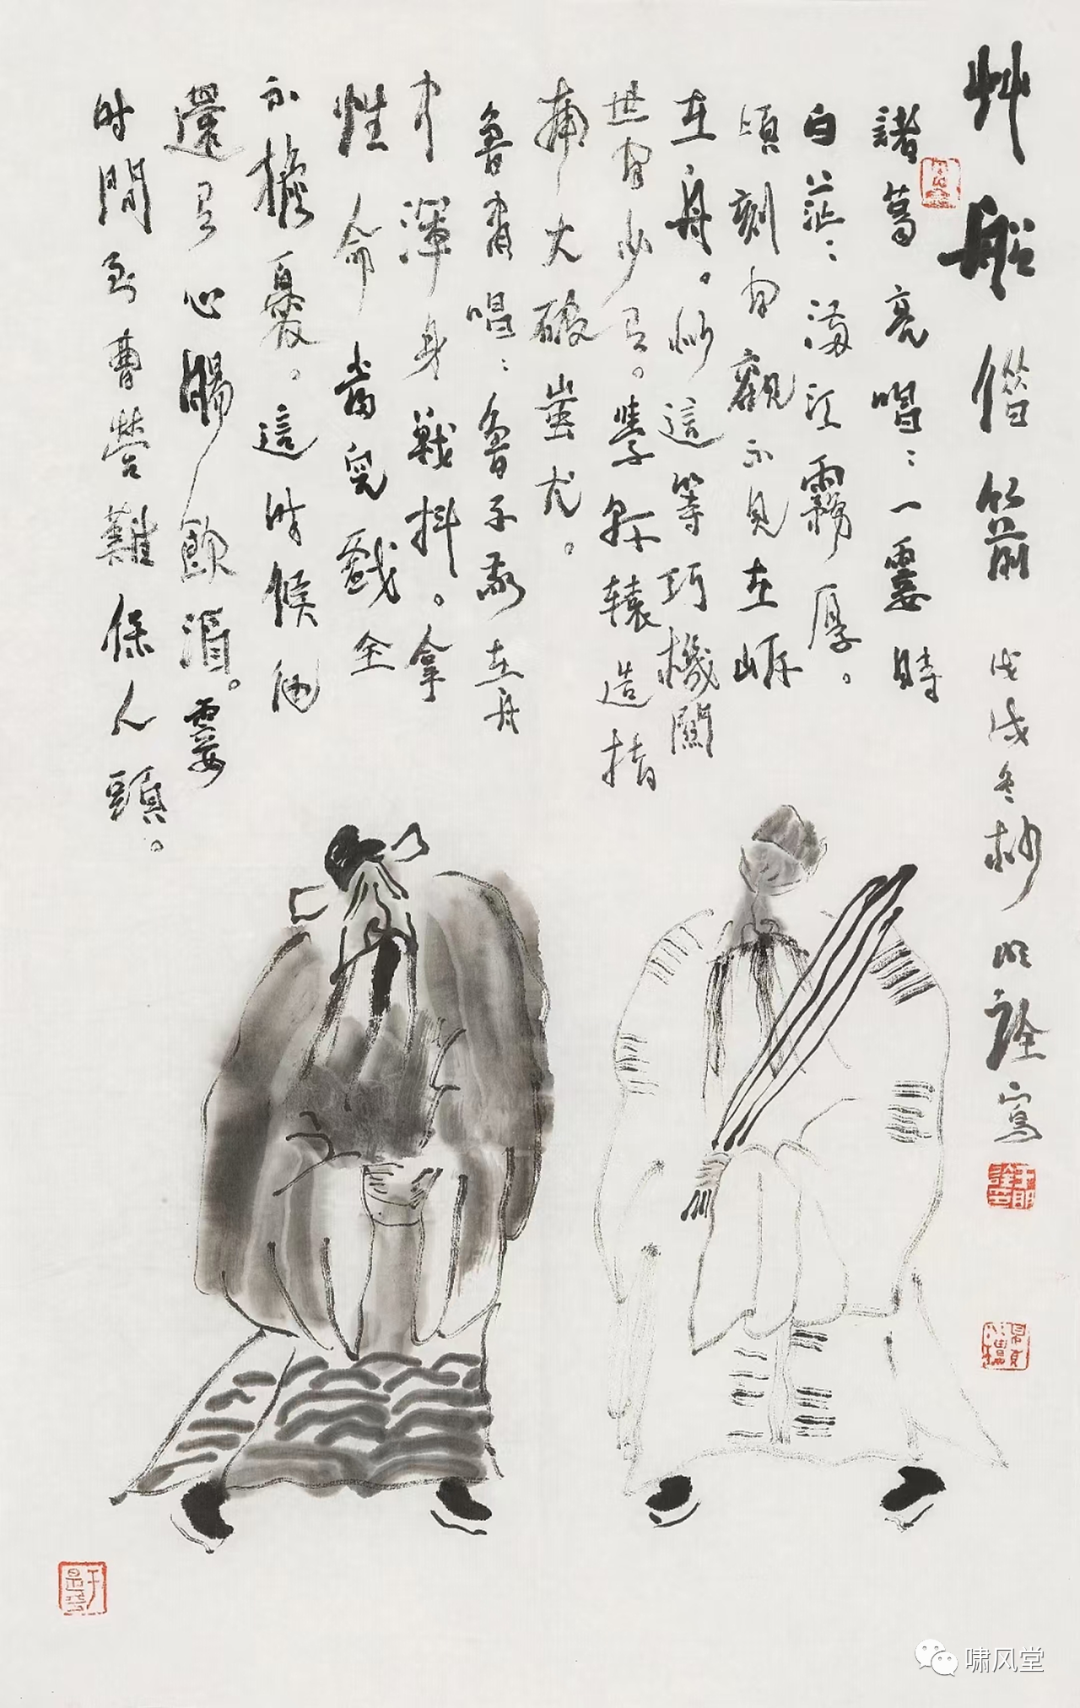 艸船借箭 戊戌冬杪 明詮寫
諸葛亮唱：一霎時
白茫茫漫江霧厚。
頃刻間觀不見在岸
在舟。似這等巧機關
世間少有。學軒轅造指
南大破蚩尤。
魯肅唱：魯子敬在舟
中渾身戰抖。拿
性命當兒戲全
不擔憂。這時候他
還有心腸飲酒。霎
時間到曹營難保人頭。
啸风堂